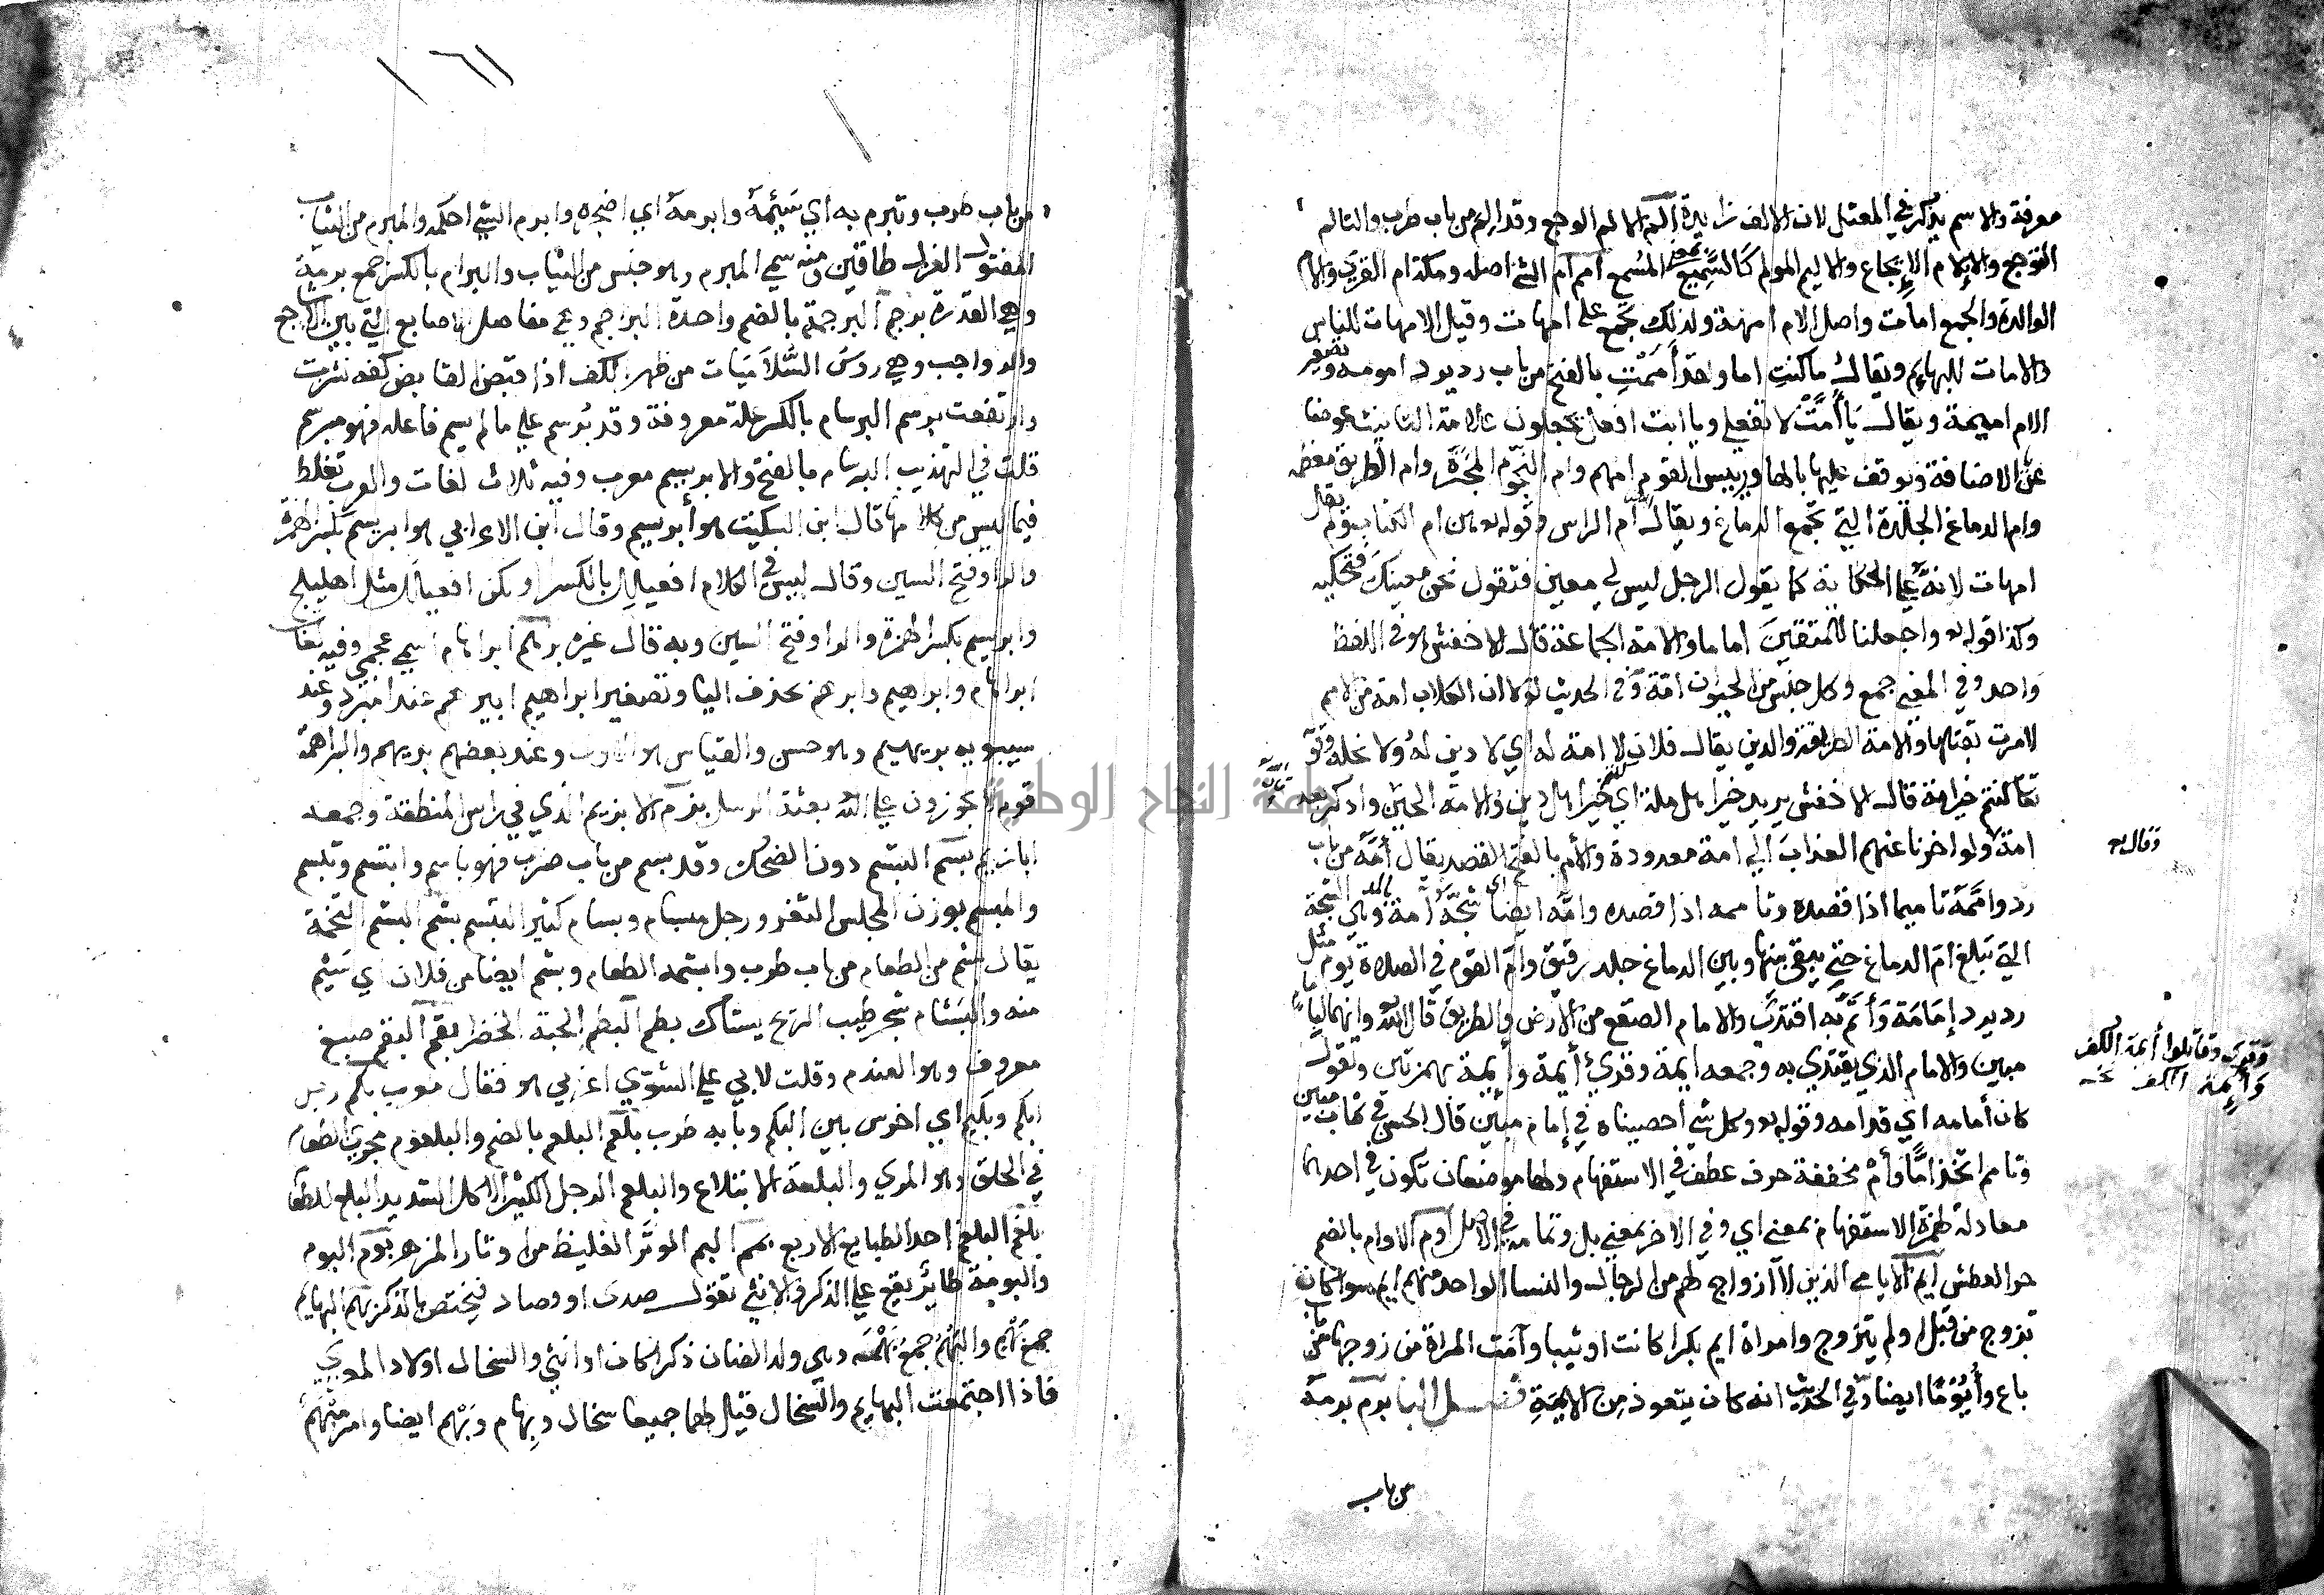 معرفة والاسم يذكر في المعتل لان الالف زايدة الم الالم الوجع وقد الم من باب طرب والتالم
التوجع والايلام الايجاع والاليم المولم كالسميع بمعنى المسمع امم ام الشي اصله ومكة ام القرى والام
الوالدة والجمع امات واصل الام امهة ولذلك تجمع على امهات وقيل الامهات للناس
والامات للبهايم ويقال ما كنت اما ولقد أممت بالفتح من باب رد يرد امومة وتصغير
الام اميمة ويقال يا أمت لا تفعلي ويا ابت افعل يجعلون علامة التانيث عوضا
عن الاضافة ويوقف عليها بالها ورييس القوم امهم وام النجوم المجرة وام الطريق معظمه
وام الدماغ الجلدة التي تجمع الدماغ ويقال ام الراس وقوله تعالى هن ام الكتاب ولم يقل
امهات لانه على الحكاية كما يقول الرجل ليس لي معين فتقول نحن معينك فتحكيه
وكذا قوله تعالى واجعلنا للمتقين اماما والامة الجماعة قال الاخفش هو في اللفظ
واحد وفي المعنى جمع وكل جنس من الحيوان امة وفي الحديث لولا ان الكلاب امة من الامم
لامرت بقتلها والامة الطريقة والدين يقال فلان لا امة له اي لا دين له ولا نحلة وقوله
تعالى كنتم خير امة قال الاخفش يريد خير اهل ملة اي خير اهل دين والامة الحين وادكر بعد
امة ولو اخرنا عنهم العذاب الى امة معدودة والأم بالفتح القصد يقال أمه من باب
رد واممه تاميما اذا قصده وتاممه اذا قصده وامه ايضا اي شجه آمة بالمد وهي الشجة
التي تبلغ ام الدماغ حتى يبقى بينها وبين الدماغ جلد رقيق وام القوم في الصلاة يوم مثل
رد يرد إمامة وأتم به اقتدى والامام الصقع من الارض والطريق قال الله تعالى وانهما لبامام
مبين والامام الذي يقتدي به وجمعه ايمة وقري أيمة وأئمة بهمزتين وتقول
كان أمامه اي قدامه وقوله تعالى وكل شي أحصيناه في إمام مبين قال الحسن في كتاب مبين
وتامم اتخذ اما وأم مخففة حرف عطف في الاستفهام ولها موضعان تكون في احدهما
معادلة لهمزة الاستفهام بمعنى اي وفي الاخر بمعنى بل وتمامه في الاصل اوم الاوام بالضم
حر العطش ايم الايامى الذين لا ازواج لهم من الرجال والنسا الواحد منهم ايم سوا كان
تزوج من قبل او لم يتزوج وامراة ايم بكرا كانت او ثيبا وآمت المراة من زوجها من باب
باع وأيوما ايضا وفي الحديث انه كان يتعوذ من الايمة فصل البا برم برمه
من باب
وقال تعالى
وقوي وقاتلوا أيمة الكفر
وأئمة الكفر
من باب طرب وتبرم به اي سئمه وابرمه اي اضجره وابرم الشي احكمه والمبرم من الثياب
المفتول الغزل طاقين ومنه سمي المبرم وهو جنس من الثياب والبرام بالكسر جمع برمة
وهي القدر برجم البرجمة بالضم واحدة البراجم وهي مفاصل الاصابع التي بين الاشاجع
والرواجب وهي روس السلاميات من ظهر الكف اذا قبض القابض كفه نشزت
وارتفعت برسم البرسام بالكسر علة معروفة وقد برسم على ما لم يسم فاعله فهو مبرسم
قلت في التهذيب البرسام بالفتح والابريسم معرب وفيه ثلاث لغات والعرب تخلط
فيما ليس من كلامها قال ابن السكيت هو أبريسم وقال ابن الاعرابي هو ابريسم بكسر الهمزة
والرا وفتح السين وقال ليس في الكلام افعيلل بالكسر ولكن افعيلل مثل اهليلج
وابريسم بكسر الهمزة والرا وفتح السين وبه قال غيره برهم ابراهام اسم عجمي وفيه لغات
ابراهام وابراهيم وابرهم بحذف اليا وتصغير ابراهيم ابيره عند المبرد وعند
سيبويه بريهيم وهو حسن والقياس هو الاول وعند بعضهم بريهم والبراهمة
قوم لا يجوزون على الله بعثة الرسل بزم الابزيم الذي في راس المنطقة وجمعه
ابازيم بسم التبسم دون الضحك وقد بسم من باب ضرب فهو باسم وابتسم وتبسم
والمبسم بوزن المجلس الثغر ورجل مبسام وبسام كثير التبسم بشم البشم التخمة
يقال بشم من الطعام من باب طرب وابشمه الطعام وبشم ايضا من فلان اي سئم
منه والبشام شجر طيب الريح يستاك بطم البطم الحبة الخضرا بقم البقم صبغ
معروف وهو العندم وقلت لابي علي الفسوي اعربي هو فقال معرب بكم رجل
ابكم وبكيم اي اخرس بين البكم وبابه طرب بلعم البلعم بالضم والبلعوم مجرى الطعام
في الحلق وهو المري والبلعمة الابتلاع والبلعم الرجل الكثير الاكل الشديد البلع للطعام
بلغم البلغم احد الطبايع الاربع بمم البم الوتر الغليظ من اوتار المزهر بوم البوم
والبومة طائر يقع على الذكر والانثى تقول صدى او وصاد فيختص بالذكر بهم البهايم
جمع بهم والبهم جمع بهمة وهي ولد الضان ذكرا كان او انثى والسخال اولاد المعزى
فاذا اجتمعت البهايم والسخال قيل لهما جميعا سخال وبهام وبهم ايضا وامر مبهم
جامعة النجاح الوطنية